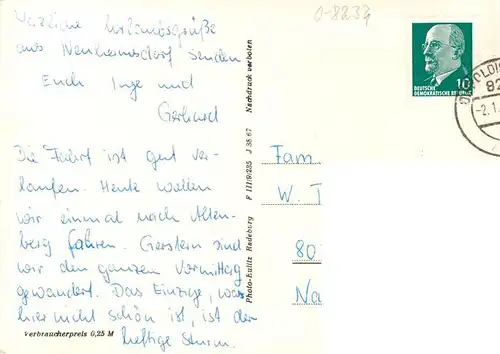 0-8234
Herzliche Urlaubsgrüße
aus Neuhermsdorf senden
Euch Inge und
Gerhard
Die Fahrt ist gut ver-
laufen. Heute wollen
wir einmal nach Alten-
berg fahren. Gestern sind
wir den ganzen Vormittag
gewandert. Das Einzige, was
hier nicht schön ist, ist der
heftige Sturm.
Verbraucherpreis 0,25 M
Photo-Kulitz Radeburg F III/9/235 J 35 67 Nachdruck verboten
10
DEUTSCHE
DEMOKRATISCHE REPUBLIK
82
-2.1.
Fam
W. T
80
Na